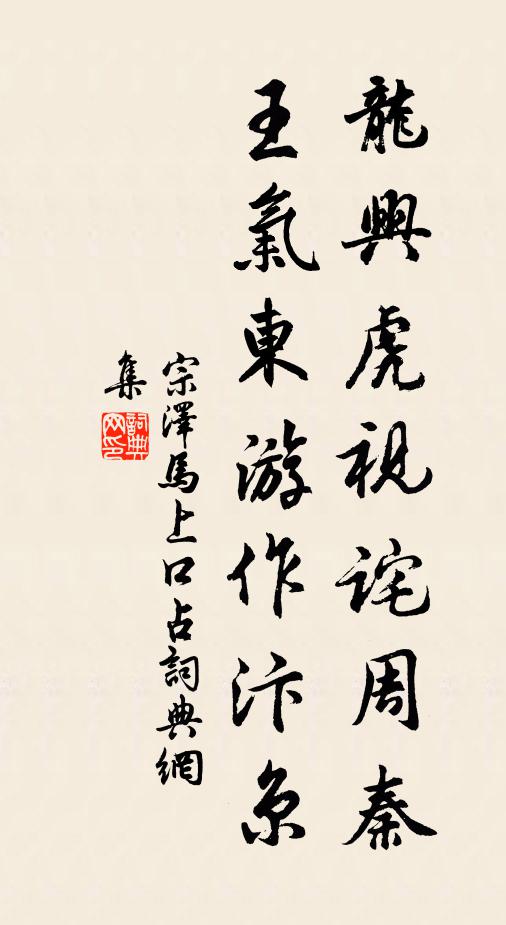 龍興虎視詫周秦
王氣東游作汴京
宗澤馬上口占詞典網
集
詞典
网印